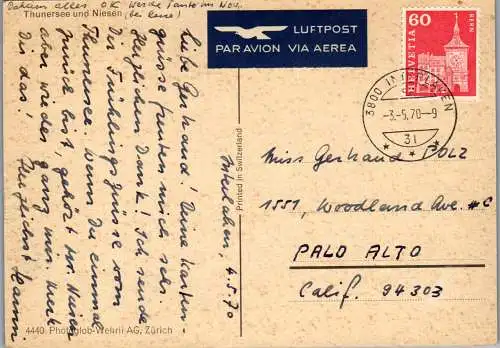 Daheim alles OK Werde Tante im Nov.
Thunersee und Niesen
LUFTPOST
PAR AVION VIA AEREA
60
HELVETIA
BERN
3800 INTERLAKEN
-3.-5.70-9
31
Interlaken, 4.5.70
Liebe Gerhand! Deine Karten-
grüsse freuten mich sehr.
Herzlichen Dank! Ich sende
Dir Frühlingsgrüsse vom
Thunersee. Wenn Du einmal
zurück bist, gehört der Niesen
aber wieder ganz mir. Merk
Dir das!
Herzlichst
Miss Gerhand POLZ
1551, Woodland Ave. #C
PALO ALTO
Calif. 94303
Printed in Switzerland
4440. Photoglob-Wehrli AG, Zürich